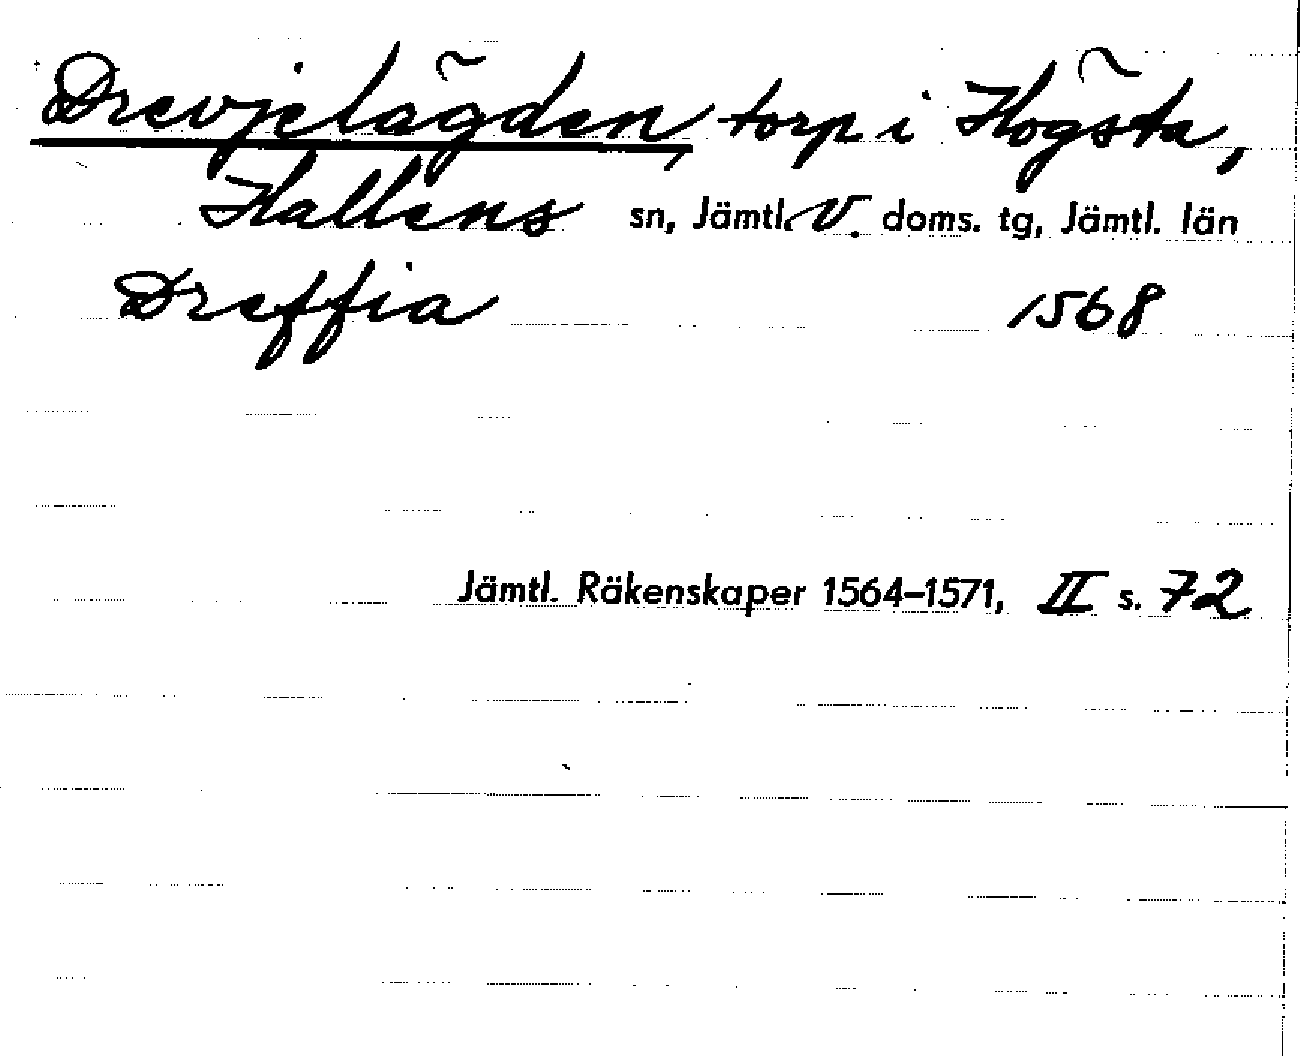 Drevjelägden, torp i Högsta,
Hallens sn, Jämtl. V. doms. tg, Jämtl. län
Dreffia 1568
Jämtl. Räkenskaper 1564–1571, II s. 72